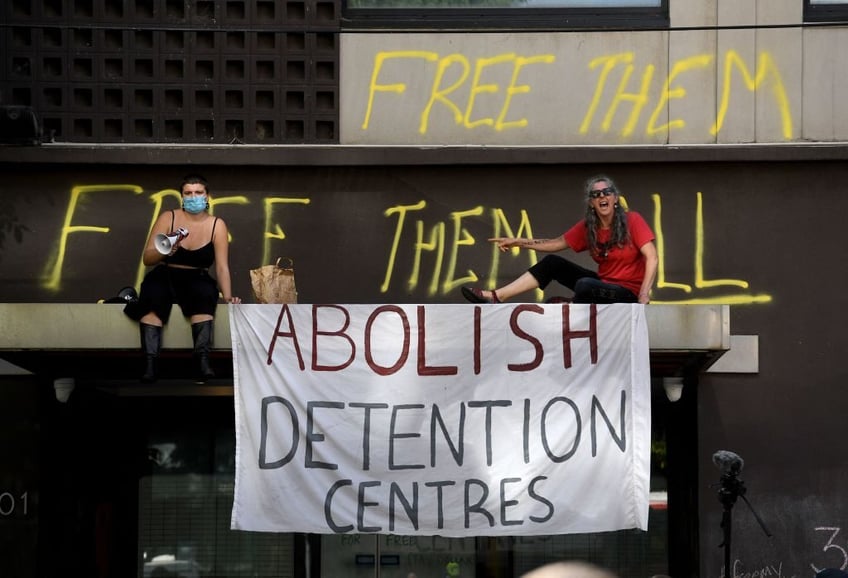 FREE THEM
FREE THEM ALL
ABOLISH
DETENTION
CENTRES
01
FOR FREE
3